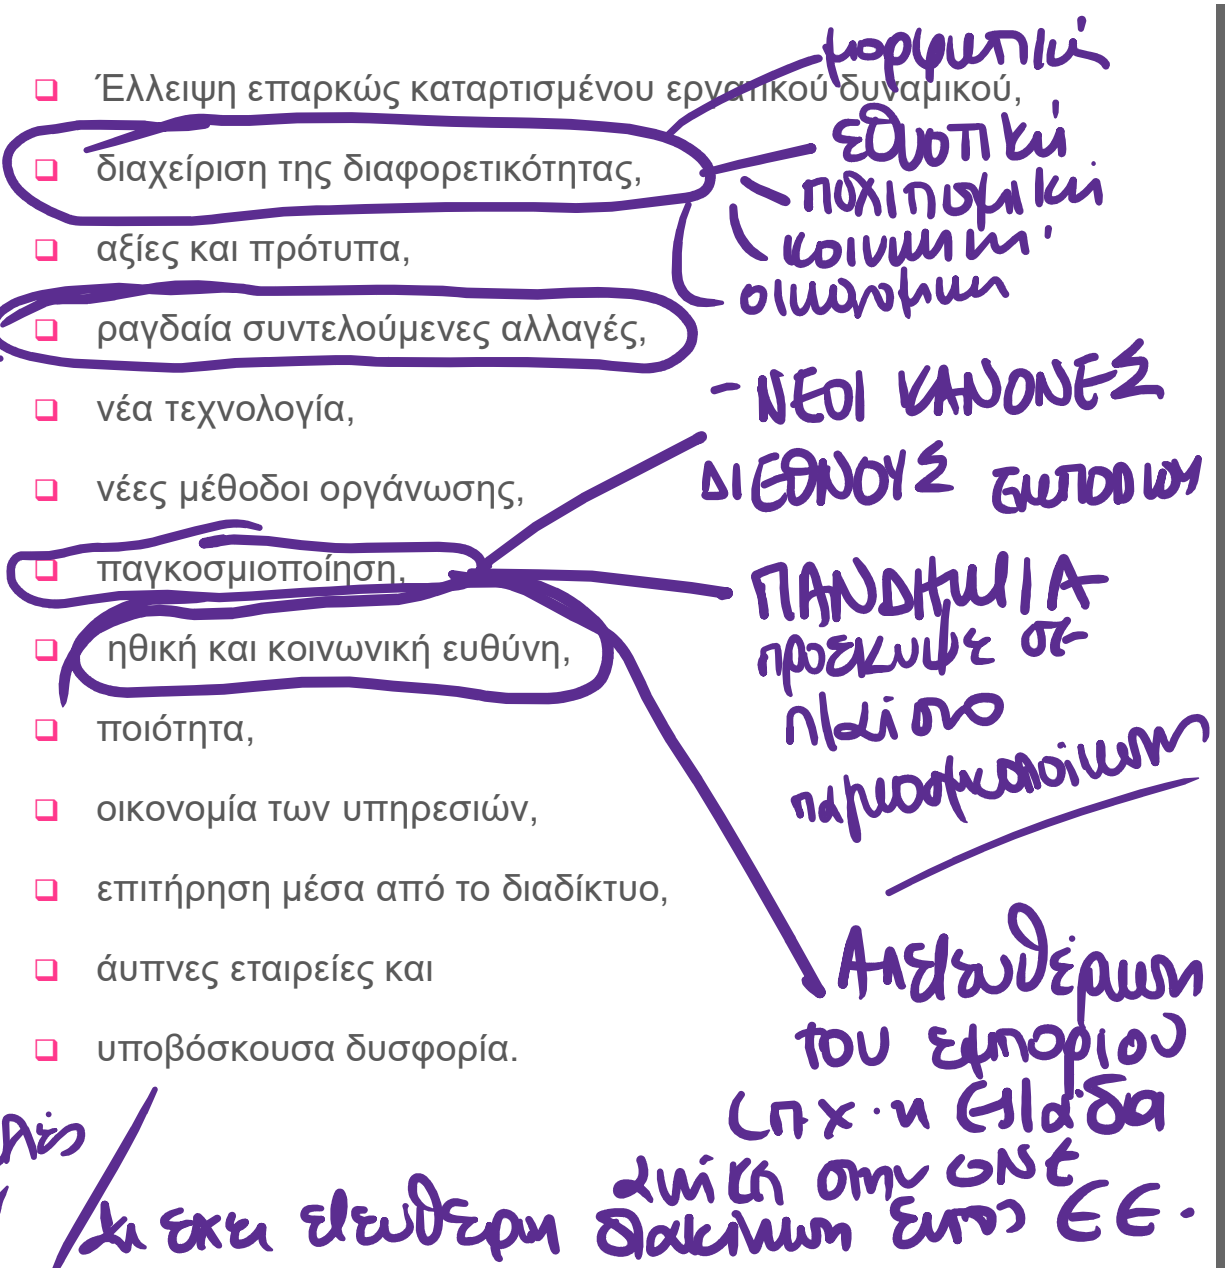 Έλλειψη επαρκώς καταρτισμένου εργατικού δυναμικού,
διαχείριση της διαφορετικότητας,
αξίες και πρότυπα,
ραγδαία συντελούμενες αλλαγές,
νέα τεχνολογία,
νέες μέθοδοι οργάνωσης,
παγκοσμιοποίηση,
ηθική και κοινωνική ευθύνη,
ποιότητα,
οικονομία των υπηρεσιών,
επιτήρηση μέσα από το διαδίκτυο,
άυπνες εταιρείες και
υποβόσκουσα δυσφορία.
μορφωτική
εθνοτική
πολιτισμική
κοινωνική
οικονομική
- ΝΕΟΙ ΚΑΝΟΝΕΣ
ΔΙΕΘΝΟΥΣ
ΠΑΝΔΗΜΙΑ
προέκυψε σε
πλαίσιο
παγκοσμιοποίησης
Απελευθέρωση
του εμπορίου
(πχ. η Ελλάδα
ανήκει στην ΟΝΕ
και έχει ελεύθερη διακίνηση εντός ΕΕ.